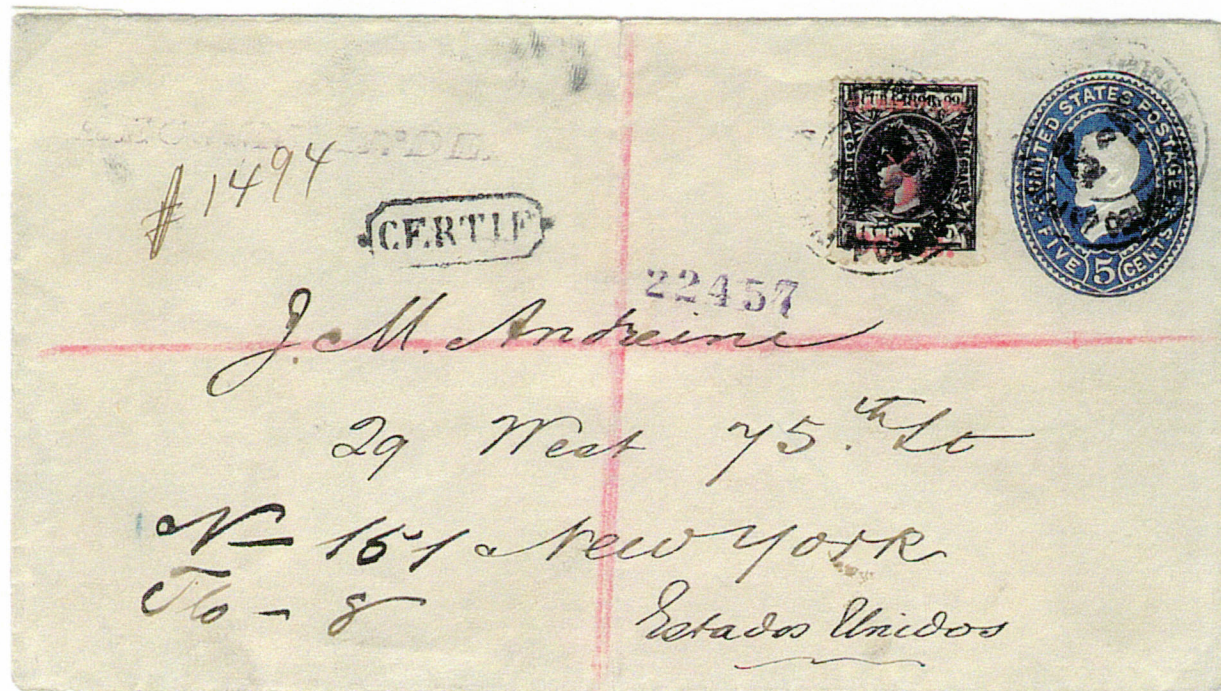 # 1494
CERTIF
22457
UNITED STATES POSTAGE
FIVE 5 CENTS
J. M. Andreini
29 West 75.th St
N— 151 New York
Flo — 8
Estados Unidos